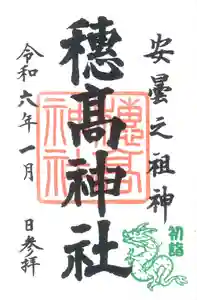 安曇之祖神
穗髙神社
穂高
神社
令和六年一月
日参拝
初詣